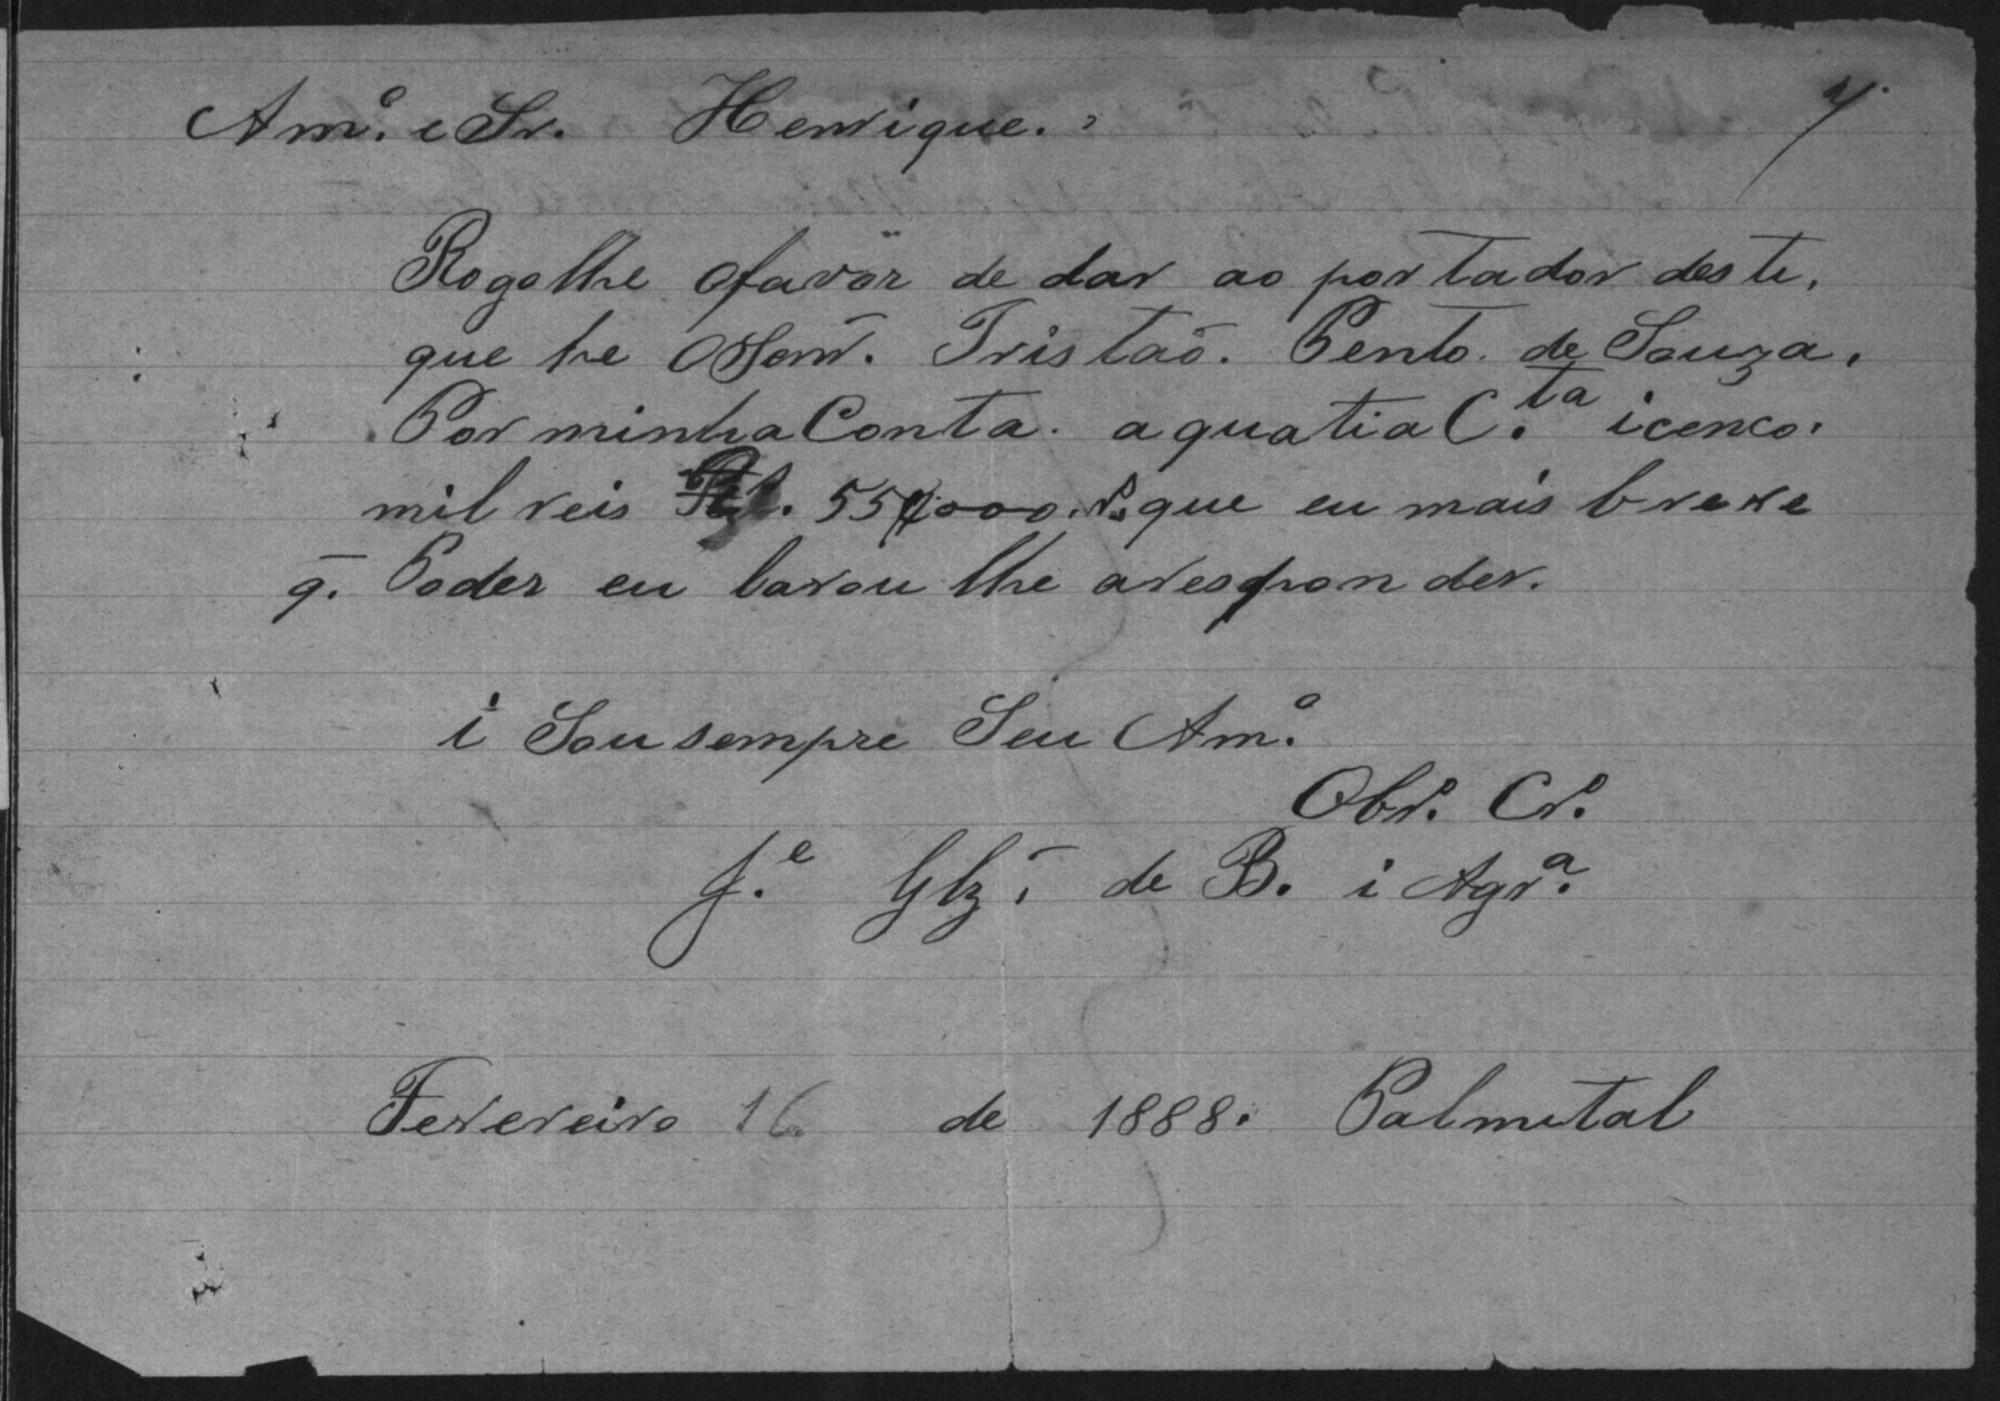 Am.º e Sr. Henrique.
Rogolhe ofavor de dar ao portador deste,
que he oSenr. Tristão. Bento de Souza,
Por minha Conta. aquatia C.ta icenco.
mil reis 55$000. rˢ que eu mais breve
q. Poder eu lavou lhe aresponder.
i Sou sempre Seu Am.º
Obrº. Crº.
J.e Glz. de B. i Agrª.
Fevereiro 16 de 1888. Palmital